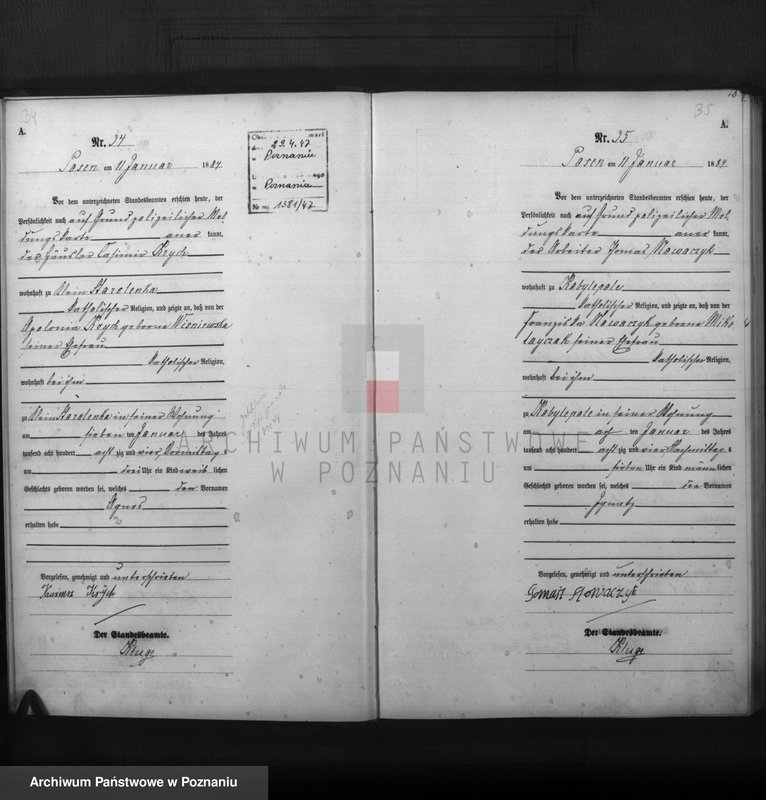 34
A.
Nr. 34
Posen am 11 Januar 1884
Vor dem unterzeichneten Standesbeamten erschien heute, der
Persönlichkeit nach auf Grund polizeilicher Mel
dungskarte aner kannt,
des Häusler Casimir Krych
wohnhaft zu Klein Starolenka
katholischer Religion, und zeigte an, daß von der
Apolonia Krych geborne Wisniewska
seiner Ehefrau
katholischer Religion,
wohnhaft bei ihm
zu Klein Starolenka in seiner Wohnung
am sieben ten Januar des Jahres
tausend acht hundert acht zig und vier Vormittag
um drei Uhr ein Kind weib lichen
Geschlechts geboren worden sei, welches den Vornamen
Agnes
erhalten habe
Vorgelesen, genehmigt und unterschrieben
Kazmer Krych
Der Standesbeamte.
Kluge
29.4.47
w Poznaniu
Poznaniu
Nr rej 1581/47
35
A.
Nr. 35
Posen am 11 Januar 1884
Vor dem unterzeichneten Standesbeamten erschien heute, der
Persönlichkeit nach auf Grund polizeilicher Mel
dungskarte aner kannt,
der Arbeiter Tomas Nowaczyk
wohnhaft zu Kobylepole
katholischer Religion, und zeigte an, daß von der
Franziska Nowaczyk geborne Miko
layczak seiner Ehefrau
katholischer Religion,
wohnhaft bei ihm
zu Kobylepole in seiner Wohnung
am ach ten Januar des Jahres
tausend acht hundert acht zig und vier Nachmittag s
um sieben Uhr ein Kind männ lichen
Geschlechts geboren worden sei, welches den Vornamen
Ignatz
erhalten habe
Vorgelesen, genehmigt und unterschrieben
Tomasz Nowaczyk
Der Standesbeamte.
Kluge
ARCHIWUM PAŃSTWOWE
W POZNANIU
Archiwum Państwowe w Poznaniu